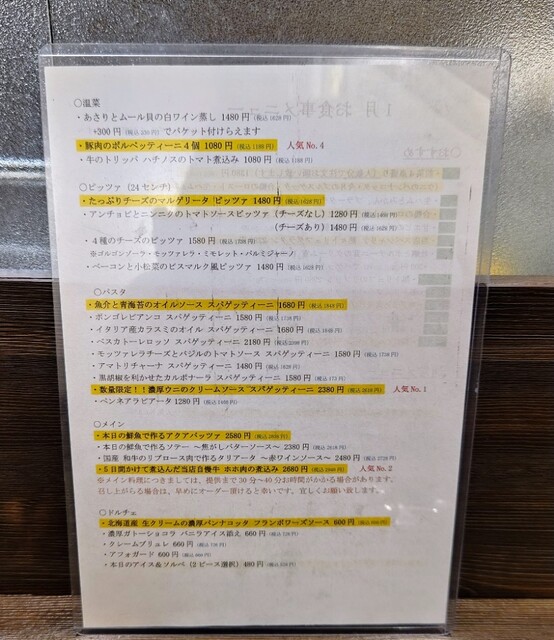 ○温菜
・あさりとムール貝の白ワイン蒸し 1480円 (税込1628円)
+300円 (税込330円) でバケット付けらえます
・豚肉のポルペッティーニ4個 1080円 (税込1188円) 人気No.4
・牛のトリッパ ハチノスのトマト煮込み 1080円
○ピッツァ (24センチ)
・たっぷりチーズのマルゲリータ ピッツァ 1480円 (税込1628円)
・アンチョビとニンニクのトマトソースピッツァ (チーズなし) 1280円
(チーズあり) 1480円
・4種のチーズのピッツァ 1580円
※ゴルゴンゾーラ・モッツァレラ・ミモレット・パルミジャーノ
・ベーコンと小松菜のビスマルク風ピッツァ 1480円
○パスタ
・魚介と青海苔のオイルソース スパゲッティーニ 1680円 (税込1848円)
・ボンゴレビアンコ スパゲッティーニ 1580円 (税込1738円)
・イタリア産カラスミのオイル スパゲッティーニ 1680円 (税込1848円)
・ペスカトーレロッソ スパゲッティーニ 2180円
・モッツァレラチーズとバジルのトマトソース スパゲッティーニ 1580円 (税込1738円)
・アマトリチャーナ スパゲッティーニ 1480円
・黒胡椒を利かせたカルボナーラ スパゲッティーニ 1580円
・数量限定!!濃厚ウニのクリームソース スパゲッティーニ 2380円 (税込2618円) 人気No.1
・ペンネアラビアータ 1280円
○メイン
・本日の鮮魚で作るアクアパッツァ 2580円
・本日の鮮魚で作るソテー ~焦がしバターソース~ 2380円 (税込2618円)
・国産 和牛のリブロース肉で作るタリアータ ~赤ワインソース~ 2480円 (税込2728円)
・5日間かけて煮込んだ当店自慢牛 ホホ肉の煮込み 2680円 人気No.2
※メイン料理につきましては、提供まで30分~40分お時間がかかる場合があります。
召し上がらる場合は、早めにオーダー頂けると幸いです。宜しくお願い致します。
○ドルチェ
・北海道産 生クリームの濃厚パンナコッタ フランボワーズソース 600円
・濃厚ガトーショコラ バニラアイス添え 660円
・クレームブリュレ 660円
・アフォガード 600円
・本日のアイス&ソルベ (2ピース選択) 480円